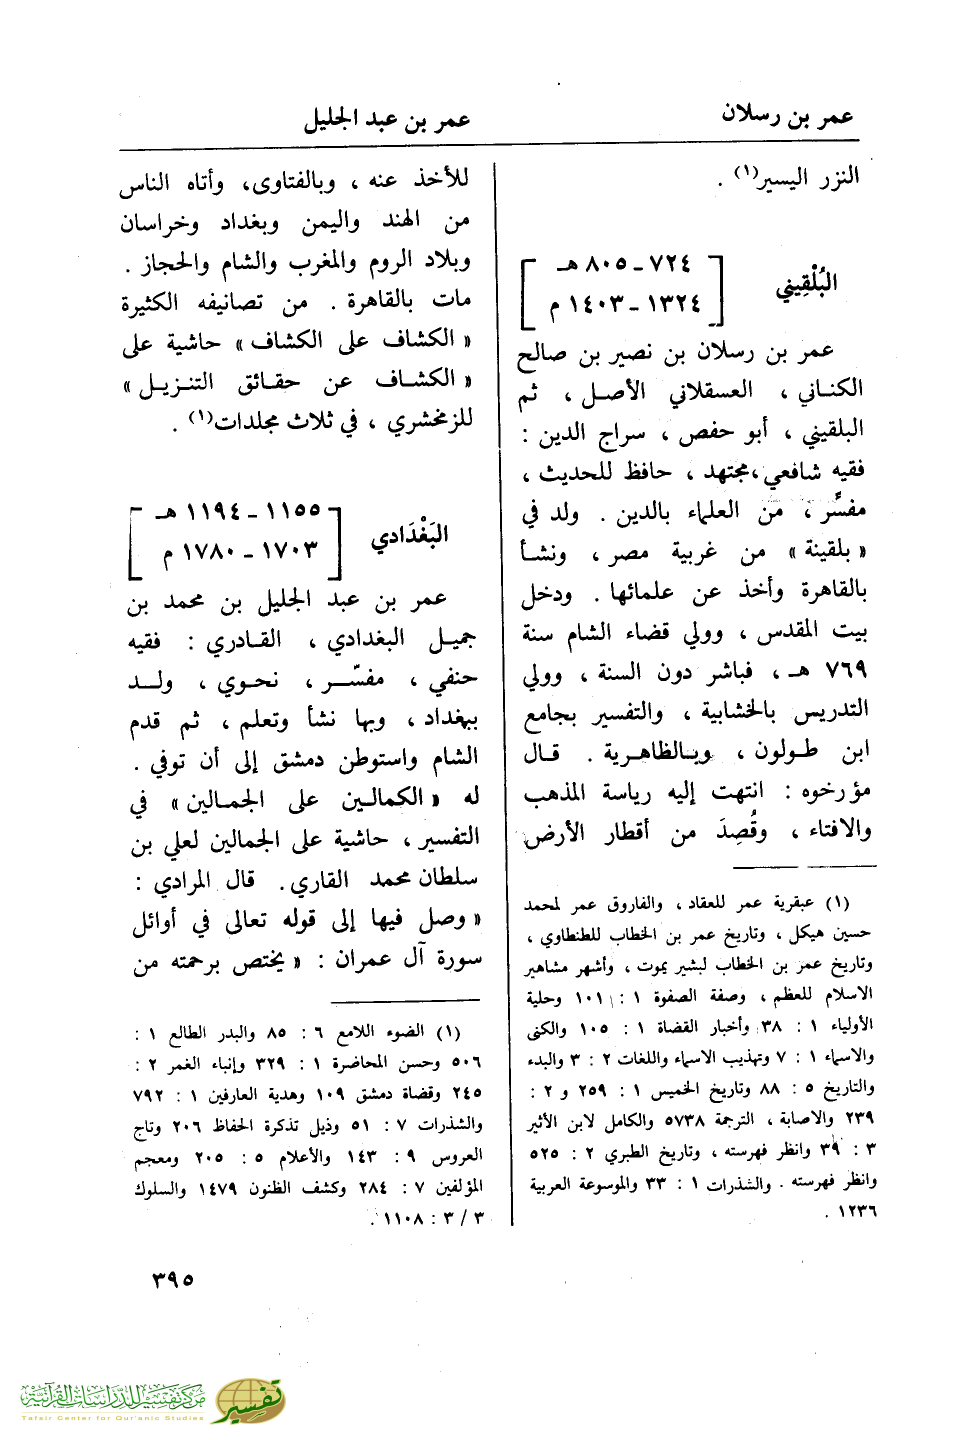 عمر بن رسلان
عمر بن عبد الجليل
النزر اليسير(١) .
البُلْقِيني
٧٢٤ - ٨٠٥ هـ
١٣٢٤ - ١٤٠٣ م
عمر بن رسلان بن نصير بن صالح
الكناني ، العسقلاني الأصل ، ثم
البلقيني ، أبو حفص ، سراج الدين :
فقيه شافعي ،مجتهد ، حافظ للحديث ،
مفسِّر ، من العلماء بالدين . ولد في
« بلقينة » من غربية مصر ، ونشأ
بالقاهرة وأخذ عن علمائها . ودخل
بيت المقدس ، وولي قضاء الشام سنة
٧٦٩ هـ ، فباشر دون السنة ، وولي
التدريس بالخشابية ، والتفسير بجامع
ابن طولون ، وبالظاهرية . قال
مؤرخوه : انتهت إليه رياسة المذهب
والافتاء ، وقُصِدَ من أقطار الأرض
(١) عبقرية عمر للعقاد ، والفاروق عمر لمحمد
حسين هيكل ، وتاريخ عمر بن الخطاب للطنطاوي ،
وتاريخ عمر بن الخطاب لبشير يموت ، وأشهر مشاهير
الاسلام للعظم ، وصفة الصفوة ١ : ١٠١ وحلية
الأولياء ١ : ٣٨ وأخبار القضاة ١ : ١٠٥ والكنى
والاسماء ١ : ٧ وتهذيب الاسماء واللغات ٢ : ٣ والبدء
والتاريخ ٥ : ٨٨ وتاريخ الخميس ١ : ٢٥٩ و ٢ :
٢٣٩ والاصابة ، الترجمة ٥٧٣٨ والكامل لابن الأثير
٣ : ٣٩ وانظر فهرسته ، وتاريخ الطبري ٢ : ٥٢٥
وانظر فهرسته . والشذرات ١ : ٣٣ والموسوعة العربية
١٢٣٦ .
للأخذ عنه ، وبالفتاوى، وأتاه الناس
من الهند واليمن وبغداد وخراسان
وبلاد الروم والمغرب والشام والحجاز .
مات بالقاهرة . من تصانيفه الكثيرة
« الكشاف على الكشاف » حاشية على
« الكشاف عن حقائق التنزيل »
للزمخشري ، في ثلاث مجلدات(١) .
البَغْدَادي
١١٥٥ - ١١٩٤ هـ
١٧٠٣ - ١٧٨٠ م
عمر بن عبد الجليل بن محمد بن
جميل البغدادي ، القادري : فقيه
حنفي ، مفسّر ، نحوي ، ولد
ببغداد ، وبها نشأ وتعلم ، ثم قدم
الشام واستوطن دمشق إلى أن توفي .
له « الكمالين على الجمالين » في
التفسير ، حاشية على الجمالين لعلي بن
سلطان محمد القاري. قال المرادي :
« وصل فيها إلى قوله تعالى في أوائل
سورة آل عمران : « يختص برحمته من
(١) الضوء اللامع ٦ : ٨٥ والبدر الطالع ١ :
٥٠٦ وحسن المحاضرة ١ : ٣٢٩ وإنباء الغمر ٢ :
٢٤٥ وقضاة دمشق ١٠٩ وهدية العارفين ١ : ٧٩٢
والشذرات ٧ : ٥١ وذيل تذكرة الحفاظ ٢٠٦ وتاج
العروس ٩ : ١٤٣ والأعلام ٥ : ٢٠٥ ومعجم
المؤلفين ٧ : ٢٨٤ وكشف الظنون ١٤٧٩ والسلوك
٣ / ٣ : ١١٠٨ .
٣٩٥
مركز تفسير للدراسات القرآنية
Tafsir Center for Qur'anic Studies
تفسير